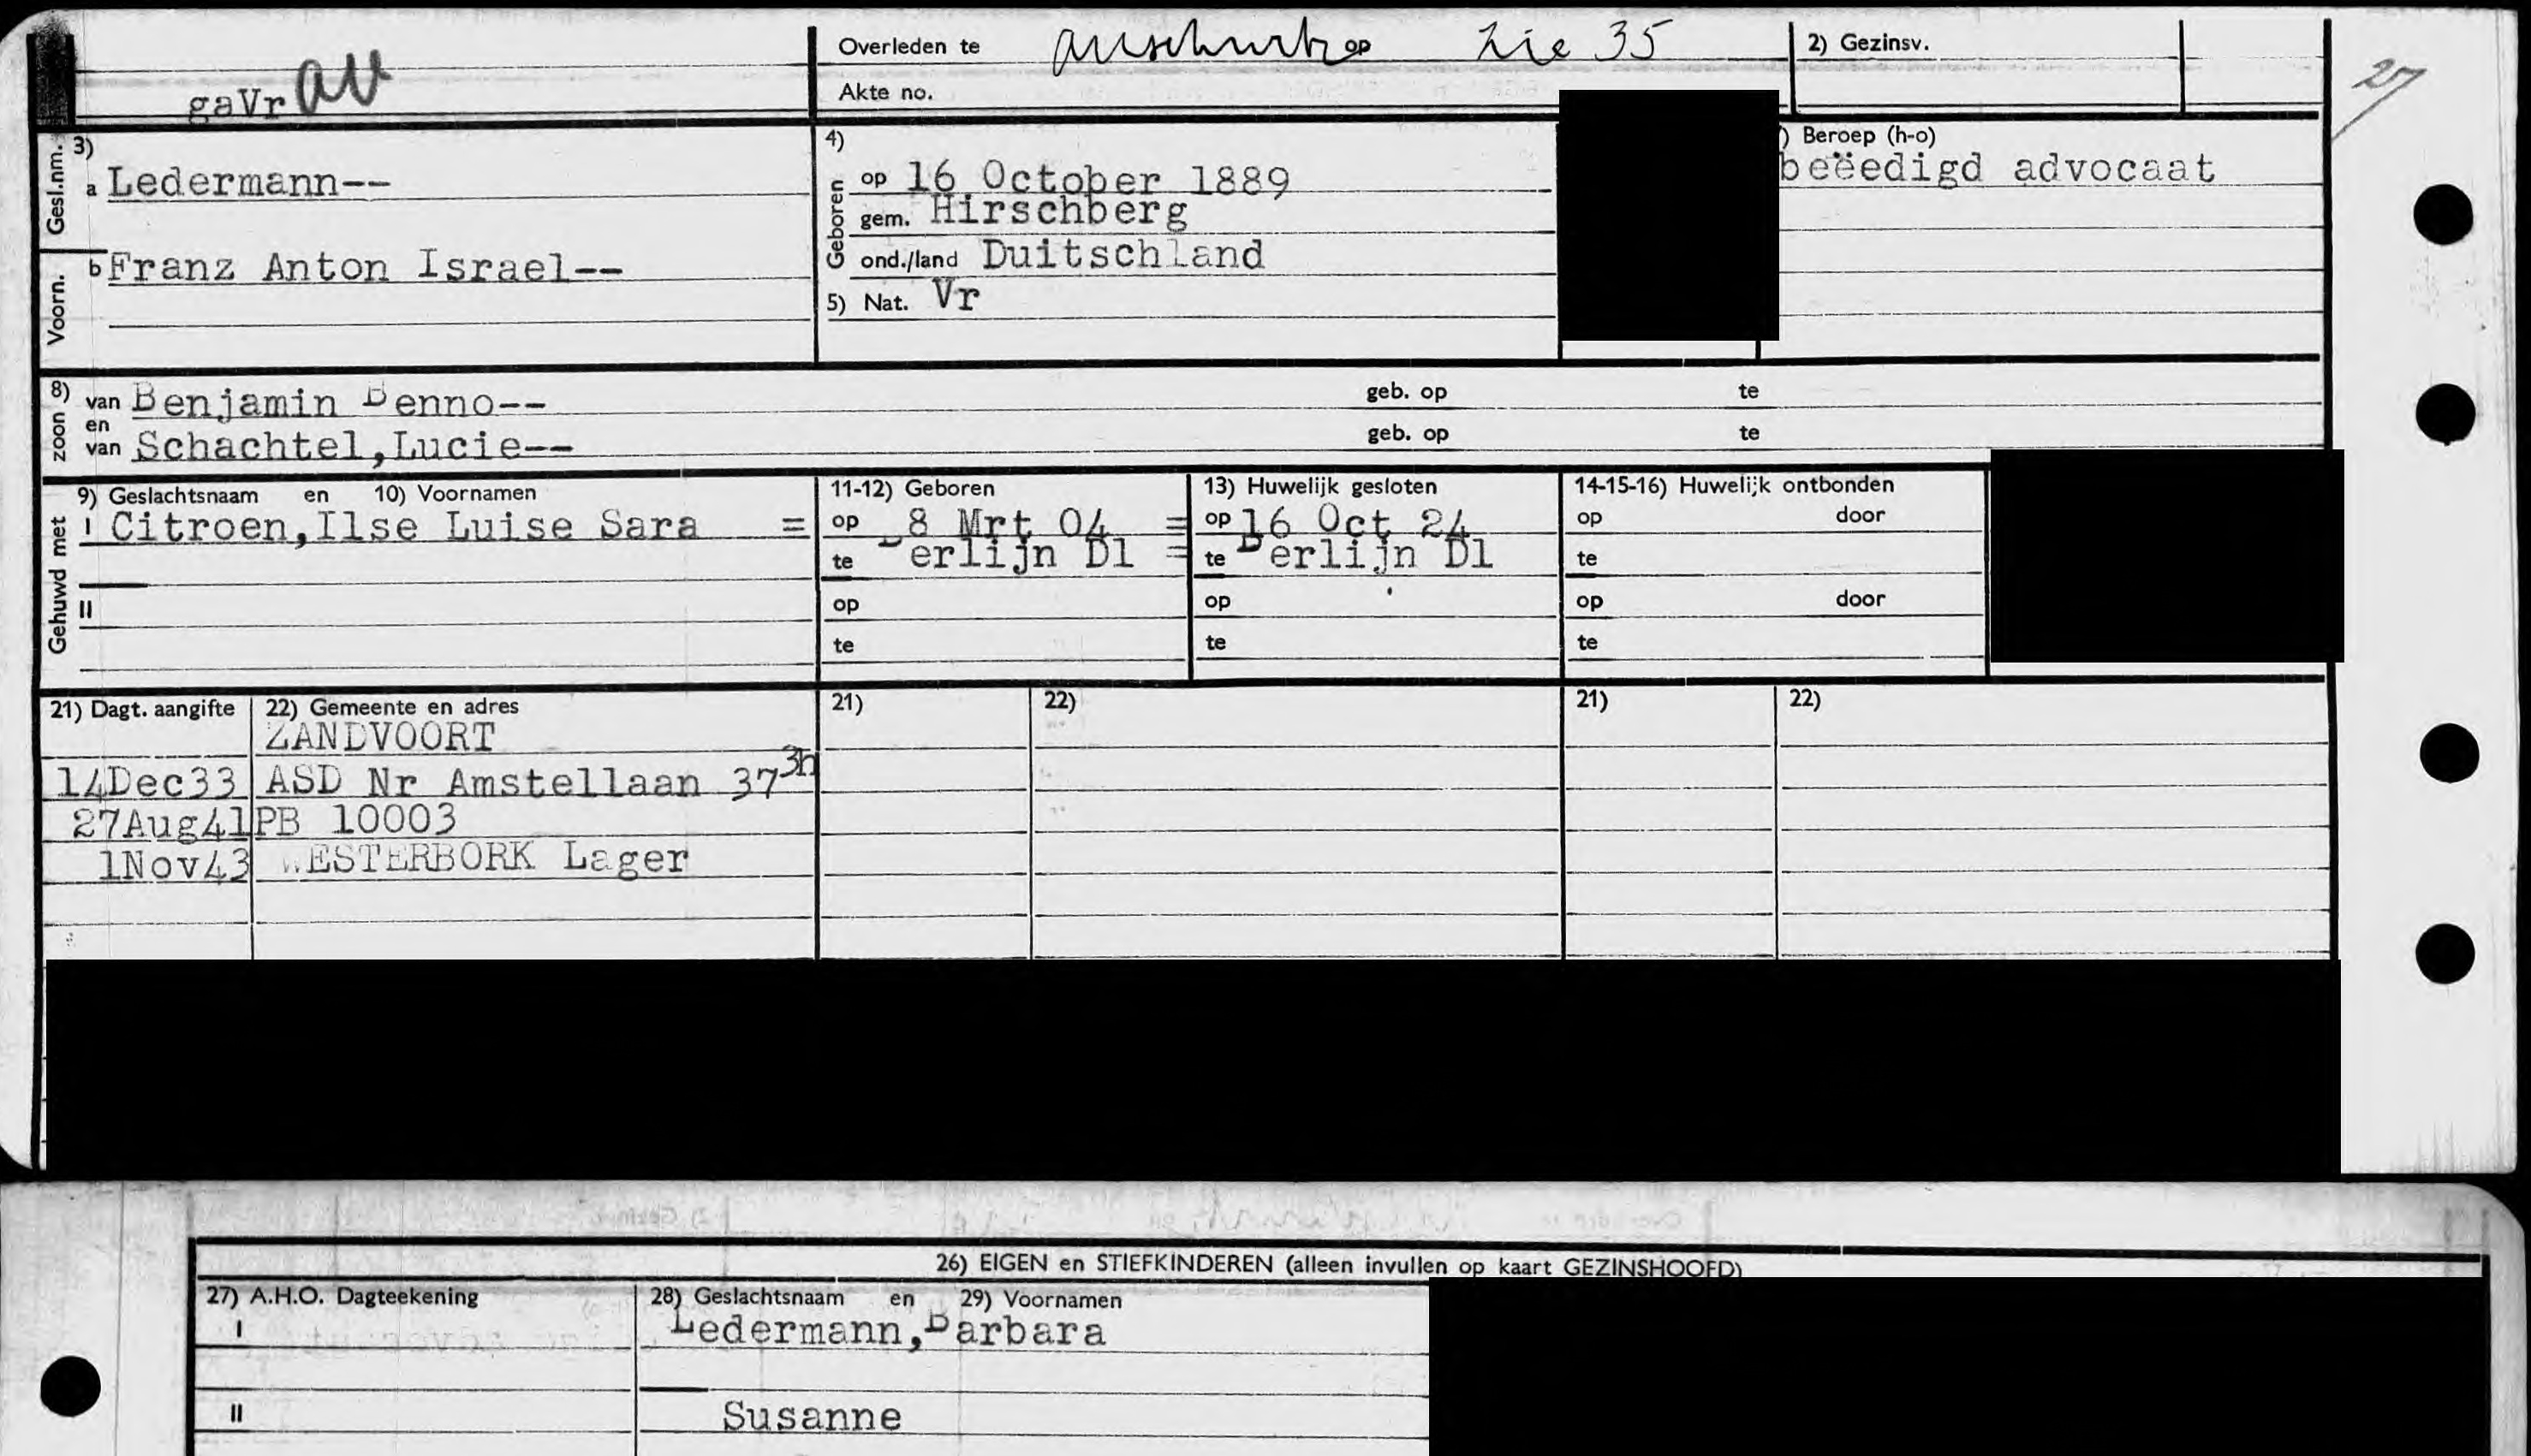 Overleden te Auschwitz op Zie 35
2) Gezinsv.
27
gaVr au
Akte no.
Gesl.nm. 3)
a Ledermann--
Voorn.
b Franz Anton Israel--
4)
Geboren
op 16 October 1889
gem. Hirschberg
ond./land Duitschland
5) Nat. Vr
) Beroep (h-o)
beëedigd advocaat
zoon 8) van Benjamin Benno-- geb. op te
en
van Schachtel,Lucie-- geb. op te
Gehuwd met
9) Geslachtsnaam en 10) Voornamen
I Citroen,Ilse Luise Sara =
II
11-12) Geboren
op 8 Mrt 04 =
te Berlijn Dl =
op
te
13) Huwelijk gesloten
op 16 Oct 24
te Berlijn Dl
op
te
14-15-16) Huwelijk ontbonden
op door
te
op door
te
21) Dagt. aangifte 22) Gemeente en adres 21) 22) 21) 22)
ZANDVOORT
14Dec33 ASD Nr Amstellaan 37 3h
27Aug41 PB 10003
1Nov43 WESTERBORK Lager
26) EIGEN en STIEFKINDEREN (alleen invullen op kaart GEZINSHOOFD)
27) A.H.O. Dagteekening 28) Geslachtsnaam en 29) Voornamen
I Ledermann,Barbara
II Susanne